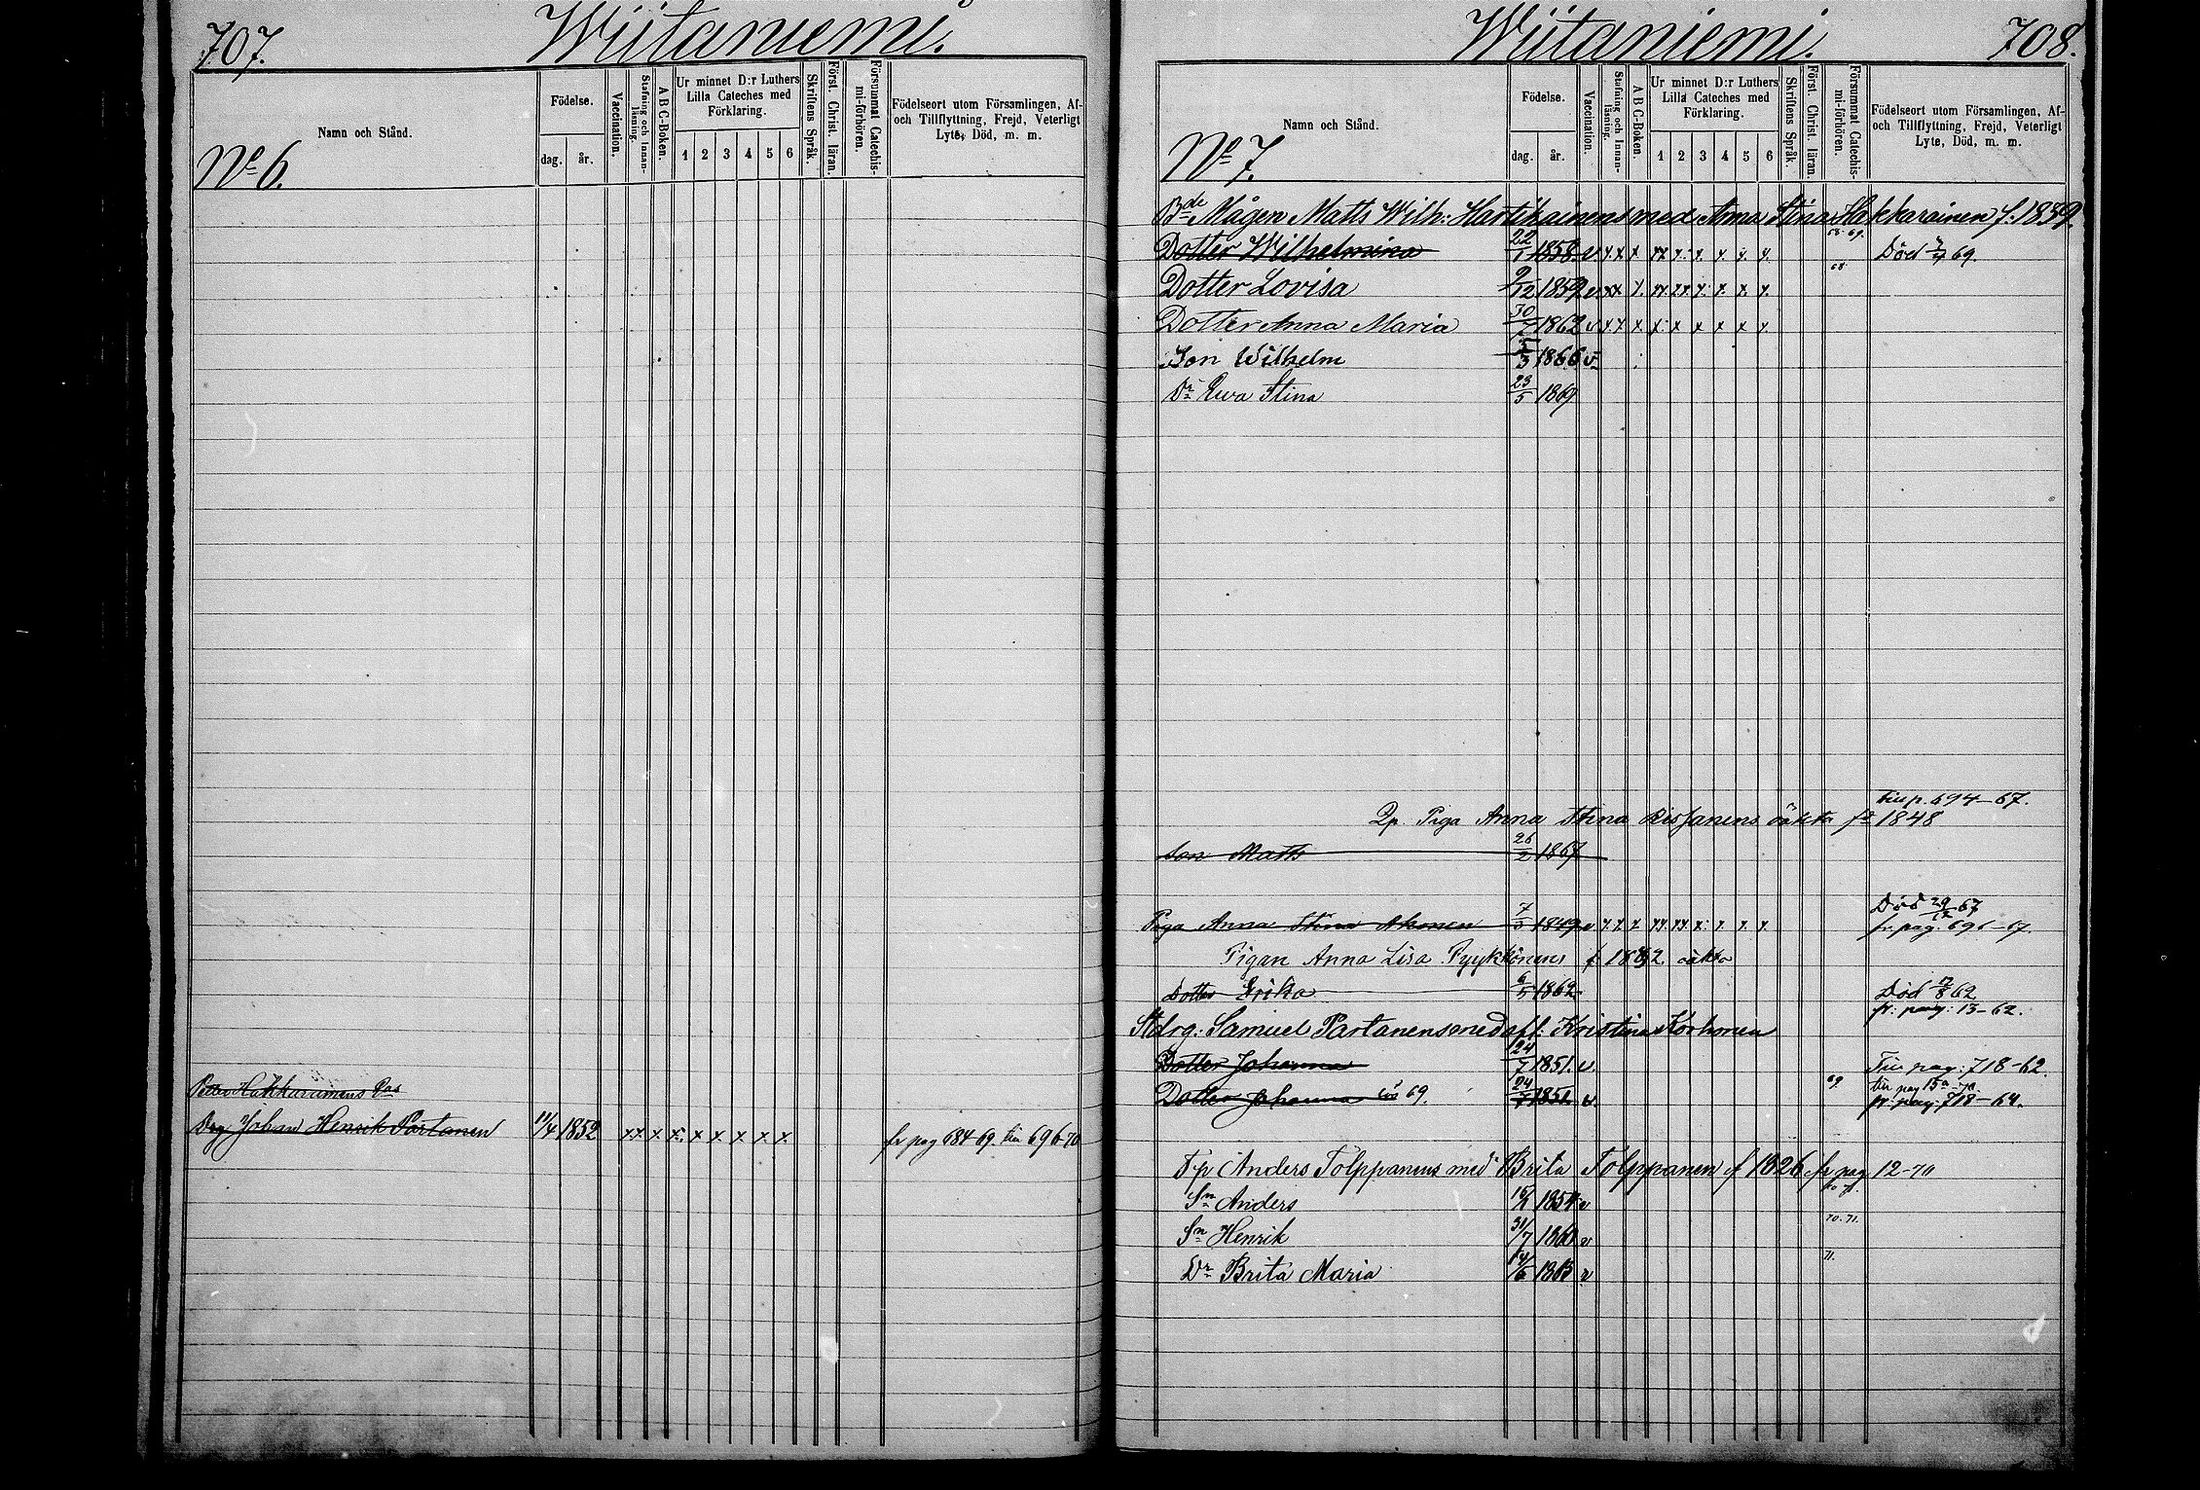 707. Wiitaniemi.
Namn och Stånd.
Födelse.
dag. år.
Vaccination.
Stafning och Innanläsning.
A B C-Boken.
Ur minnet D:r Luthers Lilla Cateches med Förklaring.
1 2 3 4 5 6
Skriftens Språk.
Först. Christ. läran.
Försummat Catechismi-förhören.
Födelseort utom Församlingen, Af- och Tillflyttning, Frejd, Veterligt Lyte, Död, m. m.
No 6.
Petter Hakkarainens
Drg Johan Henrik Partanen 11/4 1852 x x x x x x x x x fr pag 684-69. till 696-70
Wiitaniemi. 708.
Namn och Stånd.
Födelse.
dag. år.
Vaccination.
Stafning och Innanläsning.
A B C-Boken.
Ur minnet D:r Luthers Lilla Cateches med Förklaring.
1 2 3 4 5 6
Skriftens Språk.
Först. Christ. läran.
Försummat Catechismi-förhören.
Födelseort utom Församlingen, Af- och Tillflyttning, Frejd, Veterligt Lyte, Död, m. m.
No 7.
Bde Mågen Matts Wilh: Hartikainens med Anna Stina Hakkarainen f. 1839.
Dotter Wilhelmina 22/1 1858. v 68. 69. Död 69.
Dotter Lovisa 9/12 1859. v 68
Dotter Anna Maria 30/7 1862 v
Son Wilhelm 5/3 1866 v
Dr Ewa Stina 23/5 1869
till p. 694-67.
Piga Anna Stina Rissanens oäkta fd 1848
Son Matts 26/2 1867
Död 29/12 67
Piga Anna Stina Ahonen 7/3 1849 v fr. pag. 696-67.
Pigan Anna Lisa Pyykkönens f 1832 oäkta
Dotter Erika 6/5 1862 Död 17/8 62
fr. pag: 13-62.
Stdrg: Samuel Partanens med afl: Kristina Korhonen
Dotter Johanna 24/7 1851. v. Till pag: 718-62.
till pag 15a-70
Dotter Johanna 69. 24/7 1851 v 69. fr. pag: 718-64.
Tp Anders Tolppanens med Brita Tolppanen f 1826 fr pag 12-70
Sn Anders 1854 v
Sn Henrik 31/7 1860 v 70. 71.
Dr Brita Maria 14/6 1863 v 71.